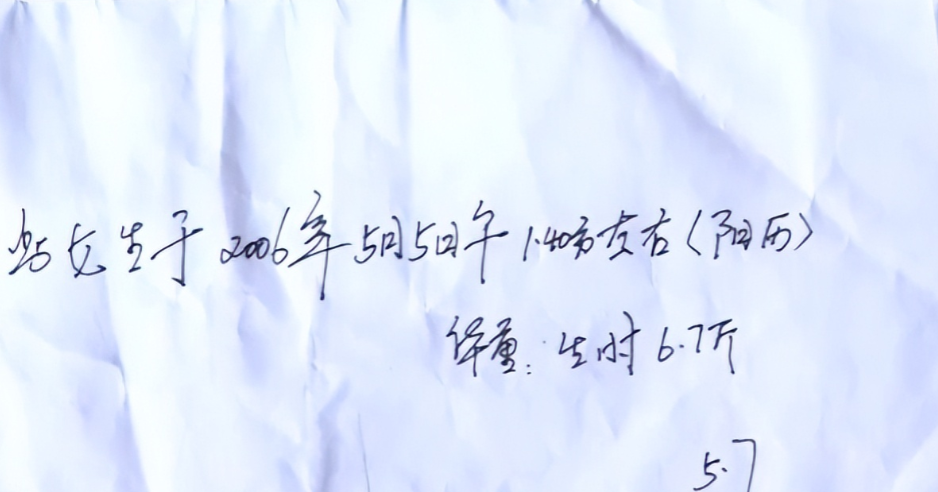 女生于2006年5月5日午1.40分左右(阳历)
体重:生时6.7斤
5.7